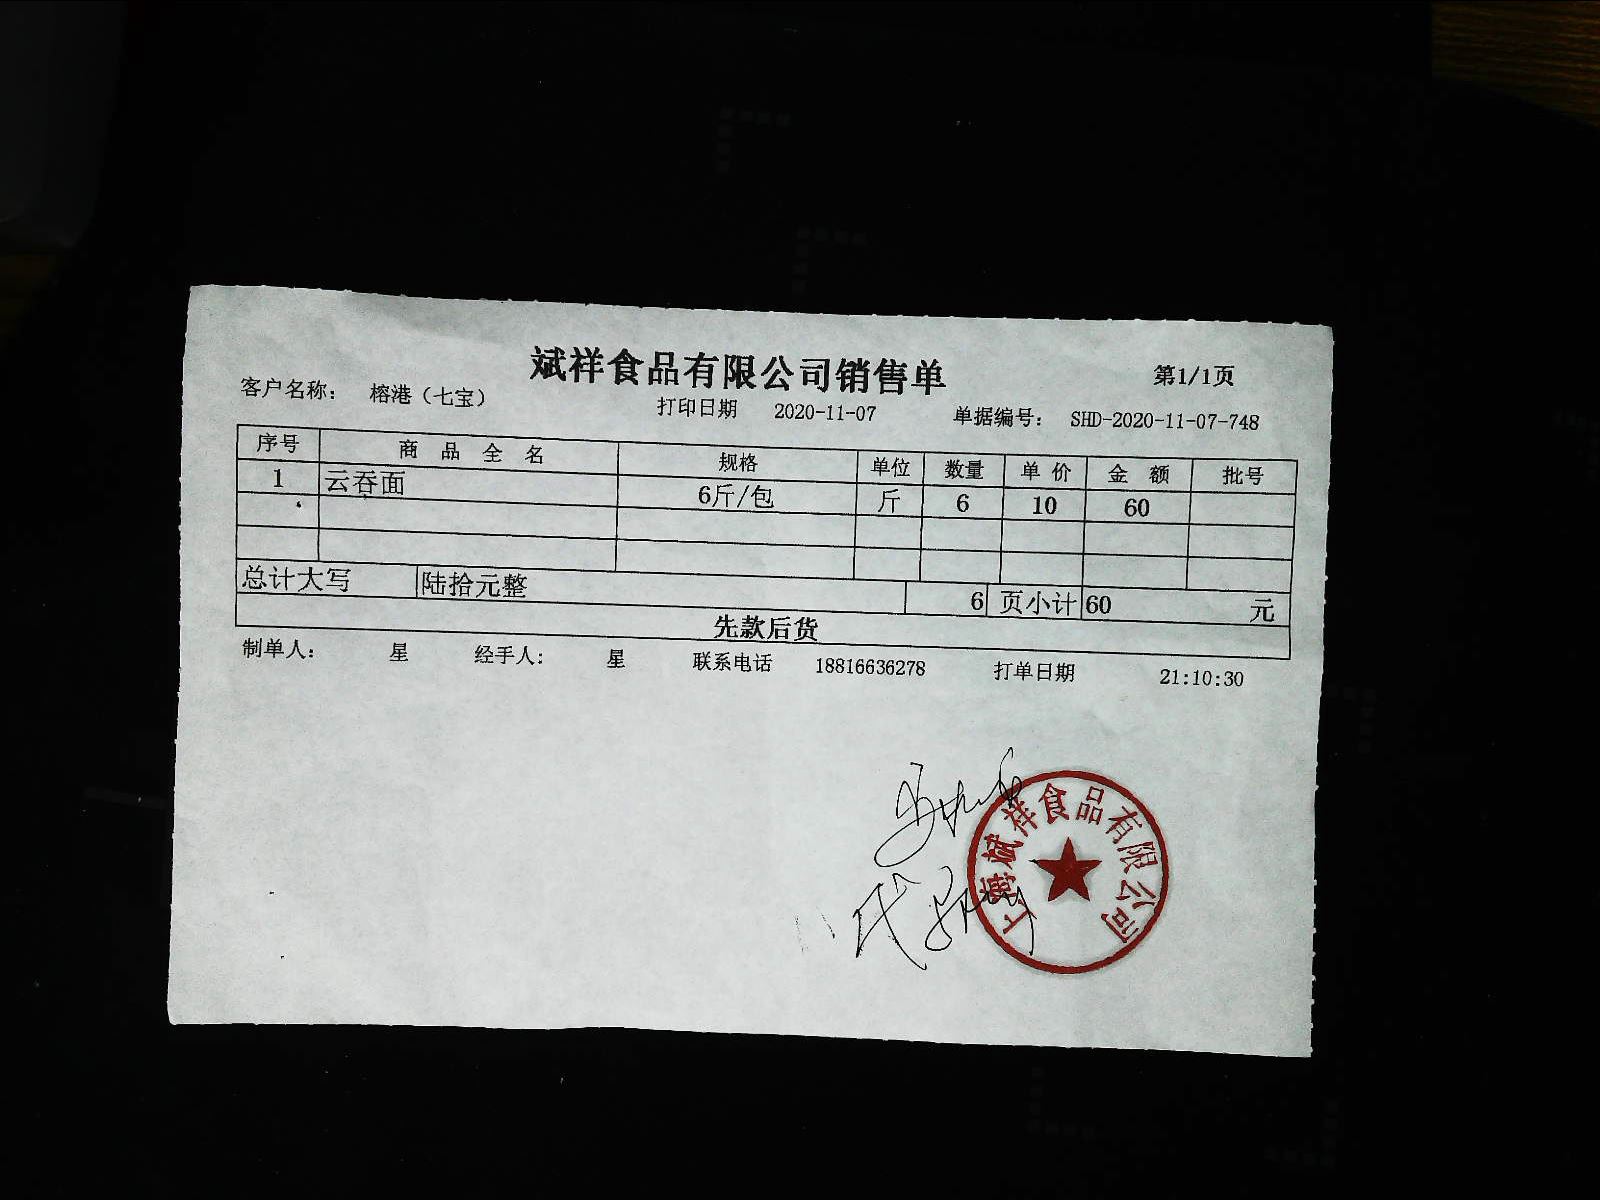 斌祥食品有限公司销售单
第1/1页
客户名称： 榕港（七宝）
打印日期 2020-11-07 单据编号： SHD-2020-11-07-748
序号 商品全名 规格 单位 数量 单价 金额 批号
1 云吞面 6斤/包 斤 6 10 60
总计大写 陆拾元整 6 页小计 60 元
先款后货
制单人： 星 经手人： 星 联系电话 18816636278 打单日期 21:10:30
上海斌祥食品有限公司